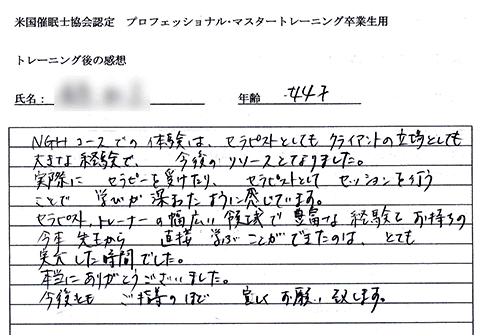 米国催眠士協会認定　プロフェッショナル・マスタートレーニング卒業生用
トレーニング後の感想
氏名：
年齢　44才
NGHコースでの体験は、セラピストとしてもクライアントの立場としても
大きな経験で、今後のリソースとなりました。
実際に セラピーを受けたり、セラピストとして セッションを行う
ことで 学びが深まったように感じています。
セラピスト、トレーナーの幅広い領域で豊富な経験をお持ちの
今本先生から 直接 学ぶことができたのは、とても
充実した時間でした。
本当にありがとうございました。
今後とも ご指導のほど 宜しくお願い致します。